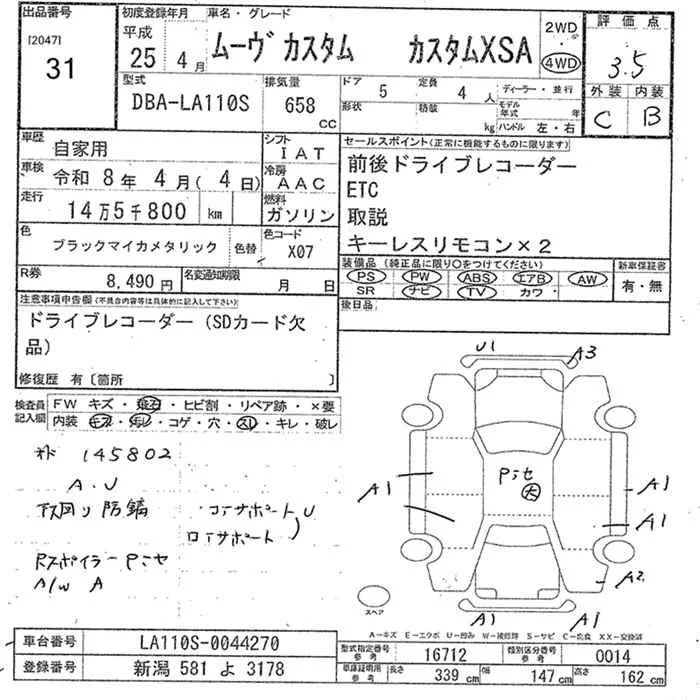 出品番号
[2047]
31
初度登録年月
平成
25 4月
車名・グレード
ムーヴカスタム カスタムXSA
2WD
・
4WD
評価点
3.5
外装 内装
C B
型式
DBA-LA110S
排気量
658
cc
ドア
5
定員
4人
ディーラー・並行
形状
積載
kg
モデル年式 年
ハンドル 左・右
車歴
自家用
シフト
IAT
車検
令和 8年 4月( 4日)
冷房
AAC
走行
14万5千800 km
燃料
ガソリン
色
ブラックマイカメタリック
色替
色コード
X07
R券
8,490円
名変通知期限
月 日
セールスポイント(正常に機能するものに限ります)
前後ドライブレコーダー
ETC
取説
キーレスリモコン×2
装備品(純正品に限り○をつけてください)
PS PW ABS エアB AW
SR ナビ TV カワ
新車保証書
有・無
後日品
注意事項申告欄(不具合内容等は具体的に記入して下さい)
ドライブレコーダー(SDカード欠
品)
修復歴 有〔箇所 〕
検査員記入欄
FW キズ・飛石・ヒビ割・リペア跡・×要
内装 キズ・汚レ・コゲ・穴・スレ・キレ・破レ
145802
A.U
下回り防錆
コアサポートU
ロアサポート
Rスポイラー Pキセ
A/W A
U1
A3
Pキセ
大
A1
A1
A1
A2
A1
A1
スペア
A−キズ E−エクボ U−凹み W−補修跡 S−サビ C−腐食 XX−交換済
車台番号
LA110S-0044270
登録番号
新潟 581 よ 3178
型式指定番号
参考
16712
類別区分番号
参考
0014
車庫証明用
参考
長さ
339 cm
幅
147 cm
高さ
162 cm